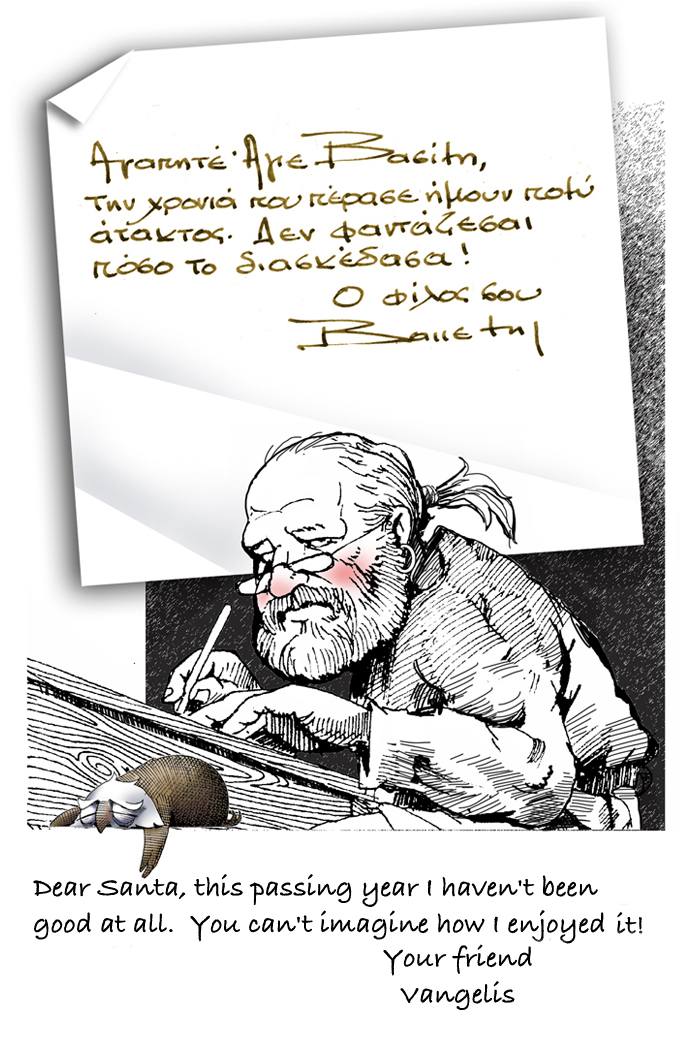 Αγαπητέ Άγιε Βασίλη,
την χρονιά που πέρασε ήμουν πολύ
άτακτος. Δεν φαντάζεσαι
πόσο το διασκέδασα!
Ο φίλος σου
Βαγγέλης
Dear Santa, this passing year I haven't been
good at all. You can't imagine how I enjoyed it!
Your friend
Vangelis